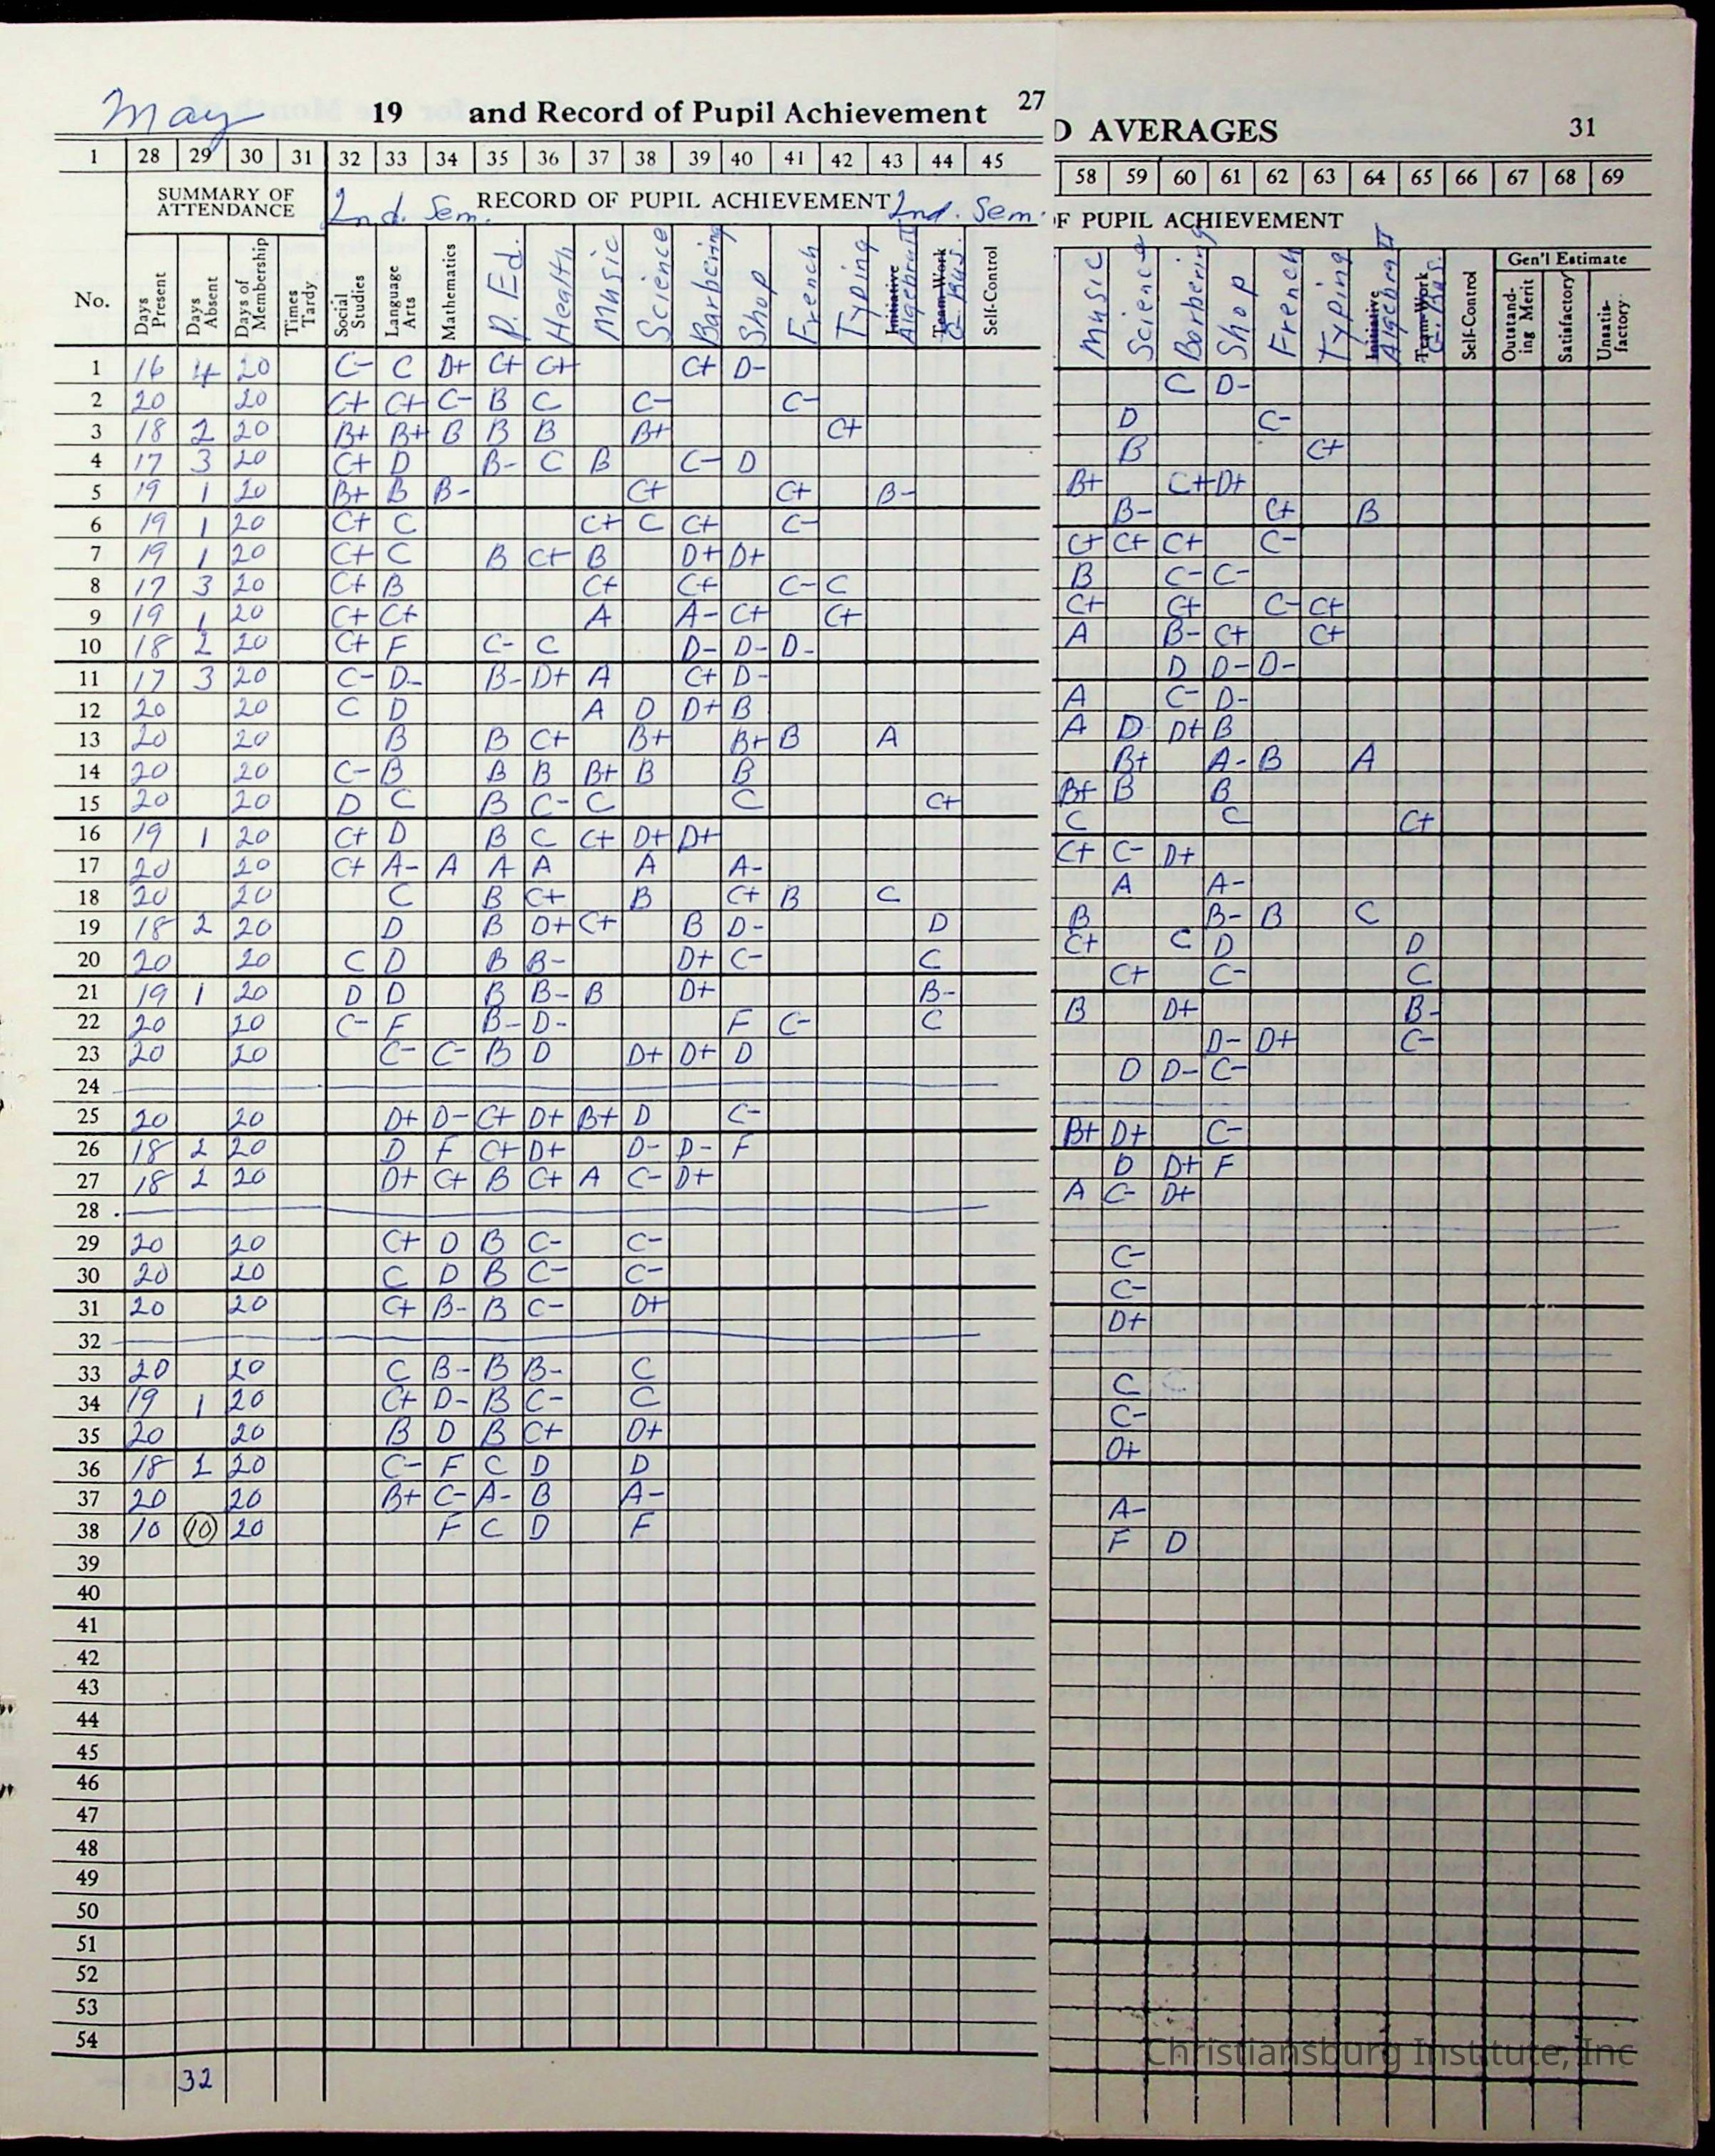 May 19 and Record of Pupil Achievement 27
1 28 29 30 31 32 33 34 35 36 37 38 39 40 41 42 43 44 45
SUMMARY OF ATTENDANCE 2nd. Sem. RECORD OF PUPIL ACHIEVEMENT 2nd. Sem.
No. Days Present Days Absent Days of Membership Times Tardy Social Studies Language Arts Mathematics P. Ed. Health Music Science Barbering Shop French Typing Initiative Algebra II Team-Work G. Bus. Self-Control
1 16 4 20 C- C D+ C+ C+ C+ D-
2 20 20 C+ C+ C- B C C- C-
3 18 2 20 B+ B+ B B B B+ C+
4 17 3 20 C+ D B- C B C- D
5 19 1 20 B+ B B- C+ C+ B-
6 19 1 20 C+ C C+ C C+ C-
7 19 1 20 C+ C B C+ B D+ D+
8 17 3 20 C+ B C+ C+ C- C
9 19 1 20 C+ C+ A A- C+ C+
10 18 2 20 C+ F C- C D- D- D-
11 17 3 20 C- D- B- D+ A C+ D-
12 20 20 C D A D D+ B
13 20 20 B B C+ B+ B+ B A
14 20 20 C- B B B B+ B B
15 20 20 D C B C- C C C+
16 19 1 20 C+ D B C C+ D+ D+
17 20 20 C+ A- A A A A A-
18 20 20 C B C+ B C+ B C
19 18 2 20 D B D+ C+ B D- D
20 20 20 C D B B- D+ C- C
21 19 1 20 D D B B- B D+ B-
22 20 20 C- F B- D- F C- C
23 20 20 C- C- B D D+ D+ D
24
25 20 20 D+ D- C+ D+ B+ D C-
26 18 2 20 D F C+ D+ D- D- F
27 18 2 20 D+ C+ B C+ A C- D+
28
29 20 20 C+ D B C- C-
30 20 20 C D B C- C-
31 20 20 C+ B- B C- D+
32
33 20 20 C B- B B- C
34 19 1 20 C+ D- B C- C
35 20 20 B D B C+ D+
36 18 2 20 C- F C D D
37 20 20 B+ C- A- B A-
38 10 10 20 F C D F
39
40
41
42
43
44
45
46
47
48
49
50
51
52
53
54
32
D AVERAGES 31
58 59 60 61 62 63 64 65 66 67 68 69
OF PUPIL ACHIEVEMENT
Gen'l Estimate
Music Science Barbering Shop French Typing Initiative Algebra II Team-Work G. Bus. Self-Control Outstanding Merit Satisfactory Unsatisfactory
C D-
D C-
B C+
B+ C+ D+
B- C+ B
C+ C+ C+ C-
B C- C-
C+ C+ C- C+
A B- C+ C+
D D- D-
A C- D-
A D D+ B
B+ A- B A
B+ B B
C C C+
C+ C- D+
A A-
B B- B C
C+ C D D
C+ C- C
B D+ B-
D- D+ C-
D D- C-
B+ D+ C-
D D+ F
A C- D+
C-
C-
D+
C
C-
D+
A-
F D
Christiansburg Institute, Inc